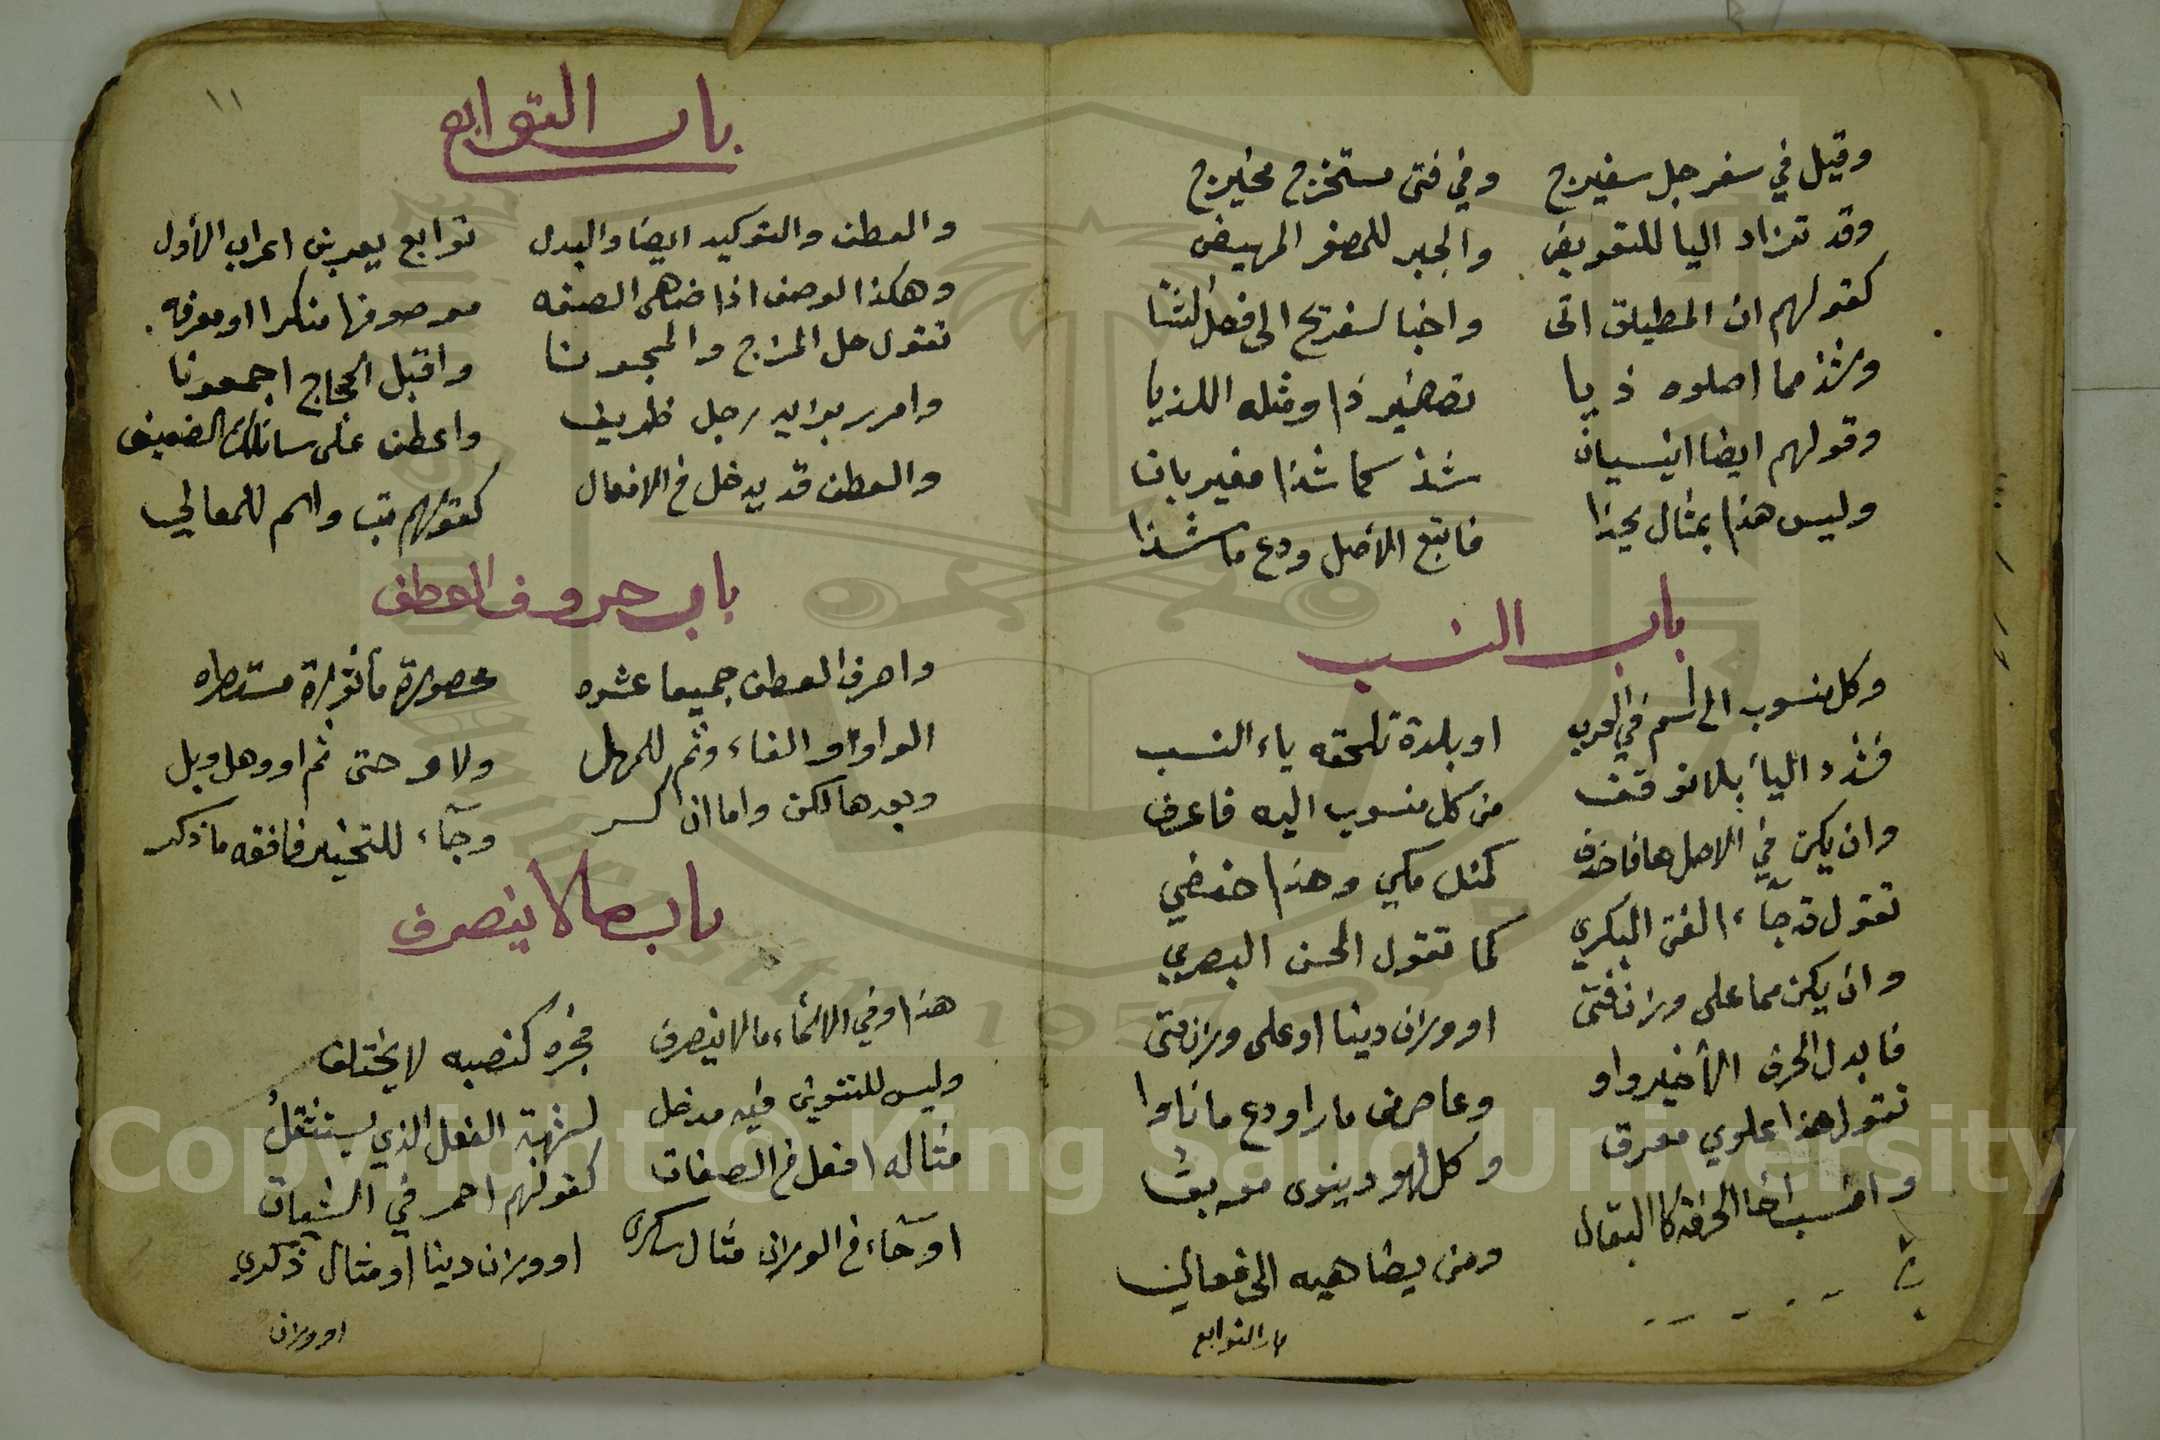 وقيل في سفرجل سفيرج وفي فتى مستخرج مخيرج
وقد تزاد اليا للتعويض والجبر للمصغر المهيض
كقولهم ان المطيليق اتى واخبا السفيريج الى فصل الشتا
وشذ مما اصلوه ذيا تصغير ذا ومثله اللذيا
وقولهم ايضا انيسيان شذ كما شذا مغيربان
وليس هذا بمثال يحذا فاتبع الأصل ودع ما شذا
باب النسب
وكل منسوب الى اسم في العرب او بلدة تلحقه ياء النسب
فشدد اليا بلا توقف من كل منسوب اليه فاعرف
وان يكن في الاصل ها فاحذف كمثل مكي وهذا حنفي
تقول قد جآء الفتى البكري كما تقول الحسن البصري
وان يكن مما على وزن فتى او وزن دينا او على وزن متى
فابدل الحرف الأخير واو وعاص من مارا ودع ما ناوا
تقول هذا علوي معرق وكل لهو دينوى موبق
وانسب اخا الحرفة كالبقال ومن يضاهيه الى فعال
باب التوابع
١١
باب التوابع
والعطف والتوكيد ايضا والبدل توابع يعربن اعراب الأول
وهكذا الوصف اذا ضاهى الصفه موصوفها منكرا او معرفه
تقول حل المزج والمجونا واقبل الحجاج اجمعونا
وامرر بزيد رجل ظريف واعطف على سائلك الضعيف
والعطف قد يدخل في الافعال كقولهم ثب واسم للمعالي
باب حروف العطف
واحرف العطف جميعا عشره محصورة مأثورة مستطره
الواو والفاء وثم للمهل ولا وحتى ثم او وهل وبل
وبعدها لكن واما ان كسر وجآء للتخيير فافقه ما ذكر
باب ما لا ينصرف
هذا وفي الاسماء ما لا ينصرف فجره كنصبه لا يختلف
وليس للتنوين فيه مدخل لشبهة الفعل الذي يستثقل
مثاله افعل في الصفات كقولهم احمر في الشيات
او جآء في الوزن مثال سكرى او وزن دينا او مثال ذكرى
او وزن